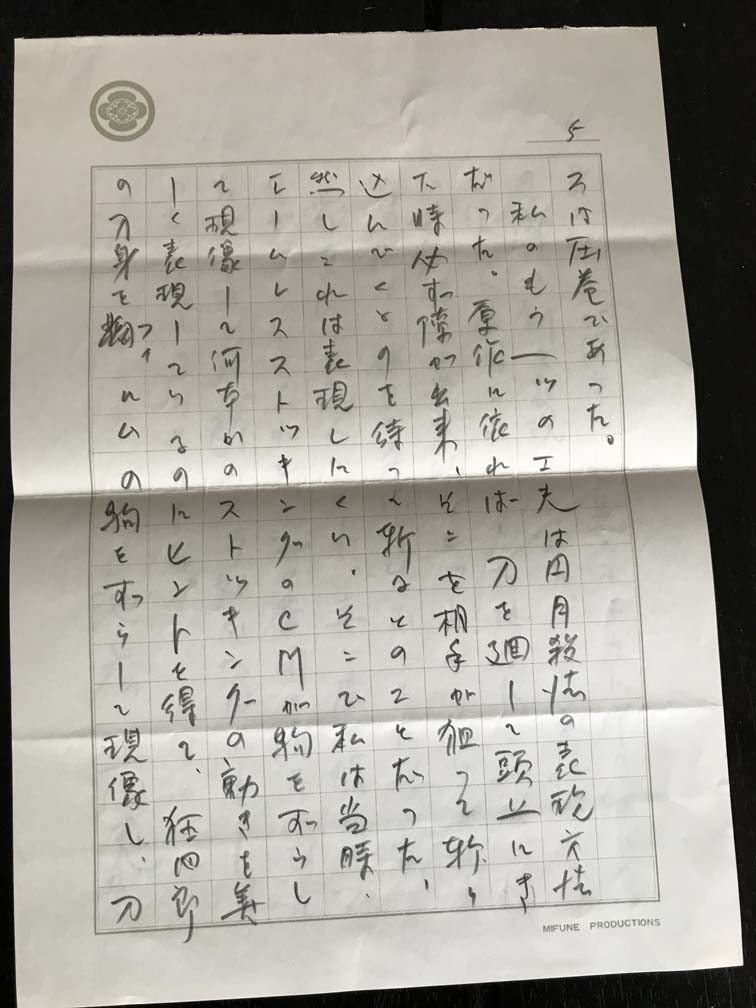 5
スは圧巻であった。
私のもう一つの工夫は円月殺法の表現方法
だった。原作に依れば 刀を廻して頭上にき
た時必ず隙が出来、そこを相手が狙って斬り
込んでくるのを待って斬るとのことだった、
然しこれは表現しにくい。そこで私は当時、
エームレスストッキングのCMが駒をずらし
て現像して何本かのストッキングの動きを美
しく表現しているのにヒントを得て、狂四郎
の刀身を ルムの駒をずらして現像し、刀
MIFUNE PRODUCTIONS